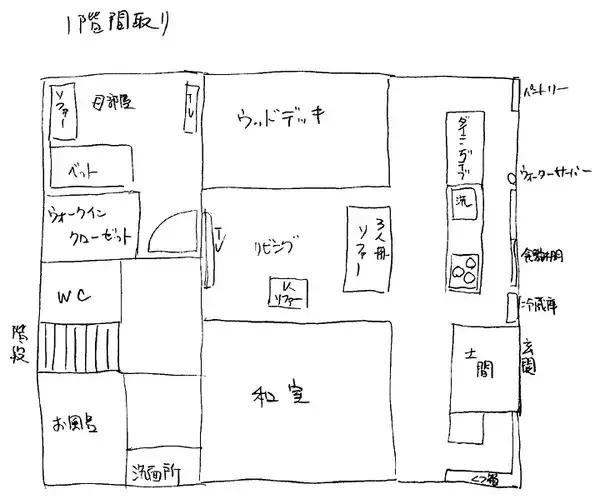 1階間取り
ソファー
母部屋
TV
ウッドデッキ
パントリー
ベット
ウォーターサーバー
洗
ウォークイン
クローゼット
TV
リビング
3人用
ソファー
1人
ソファー
WC
冷蔵庫
階段
土間
玄関
和室
お風呂
洗面所
くつ箱